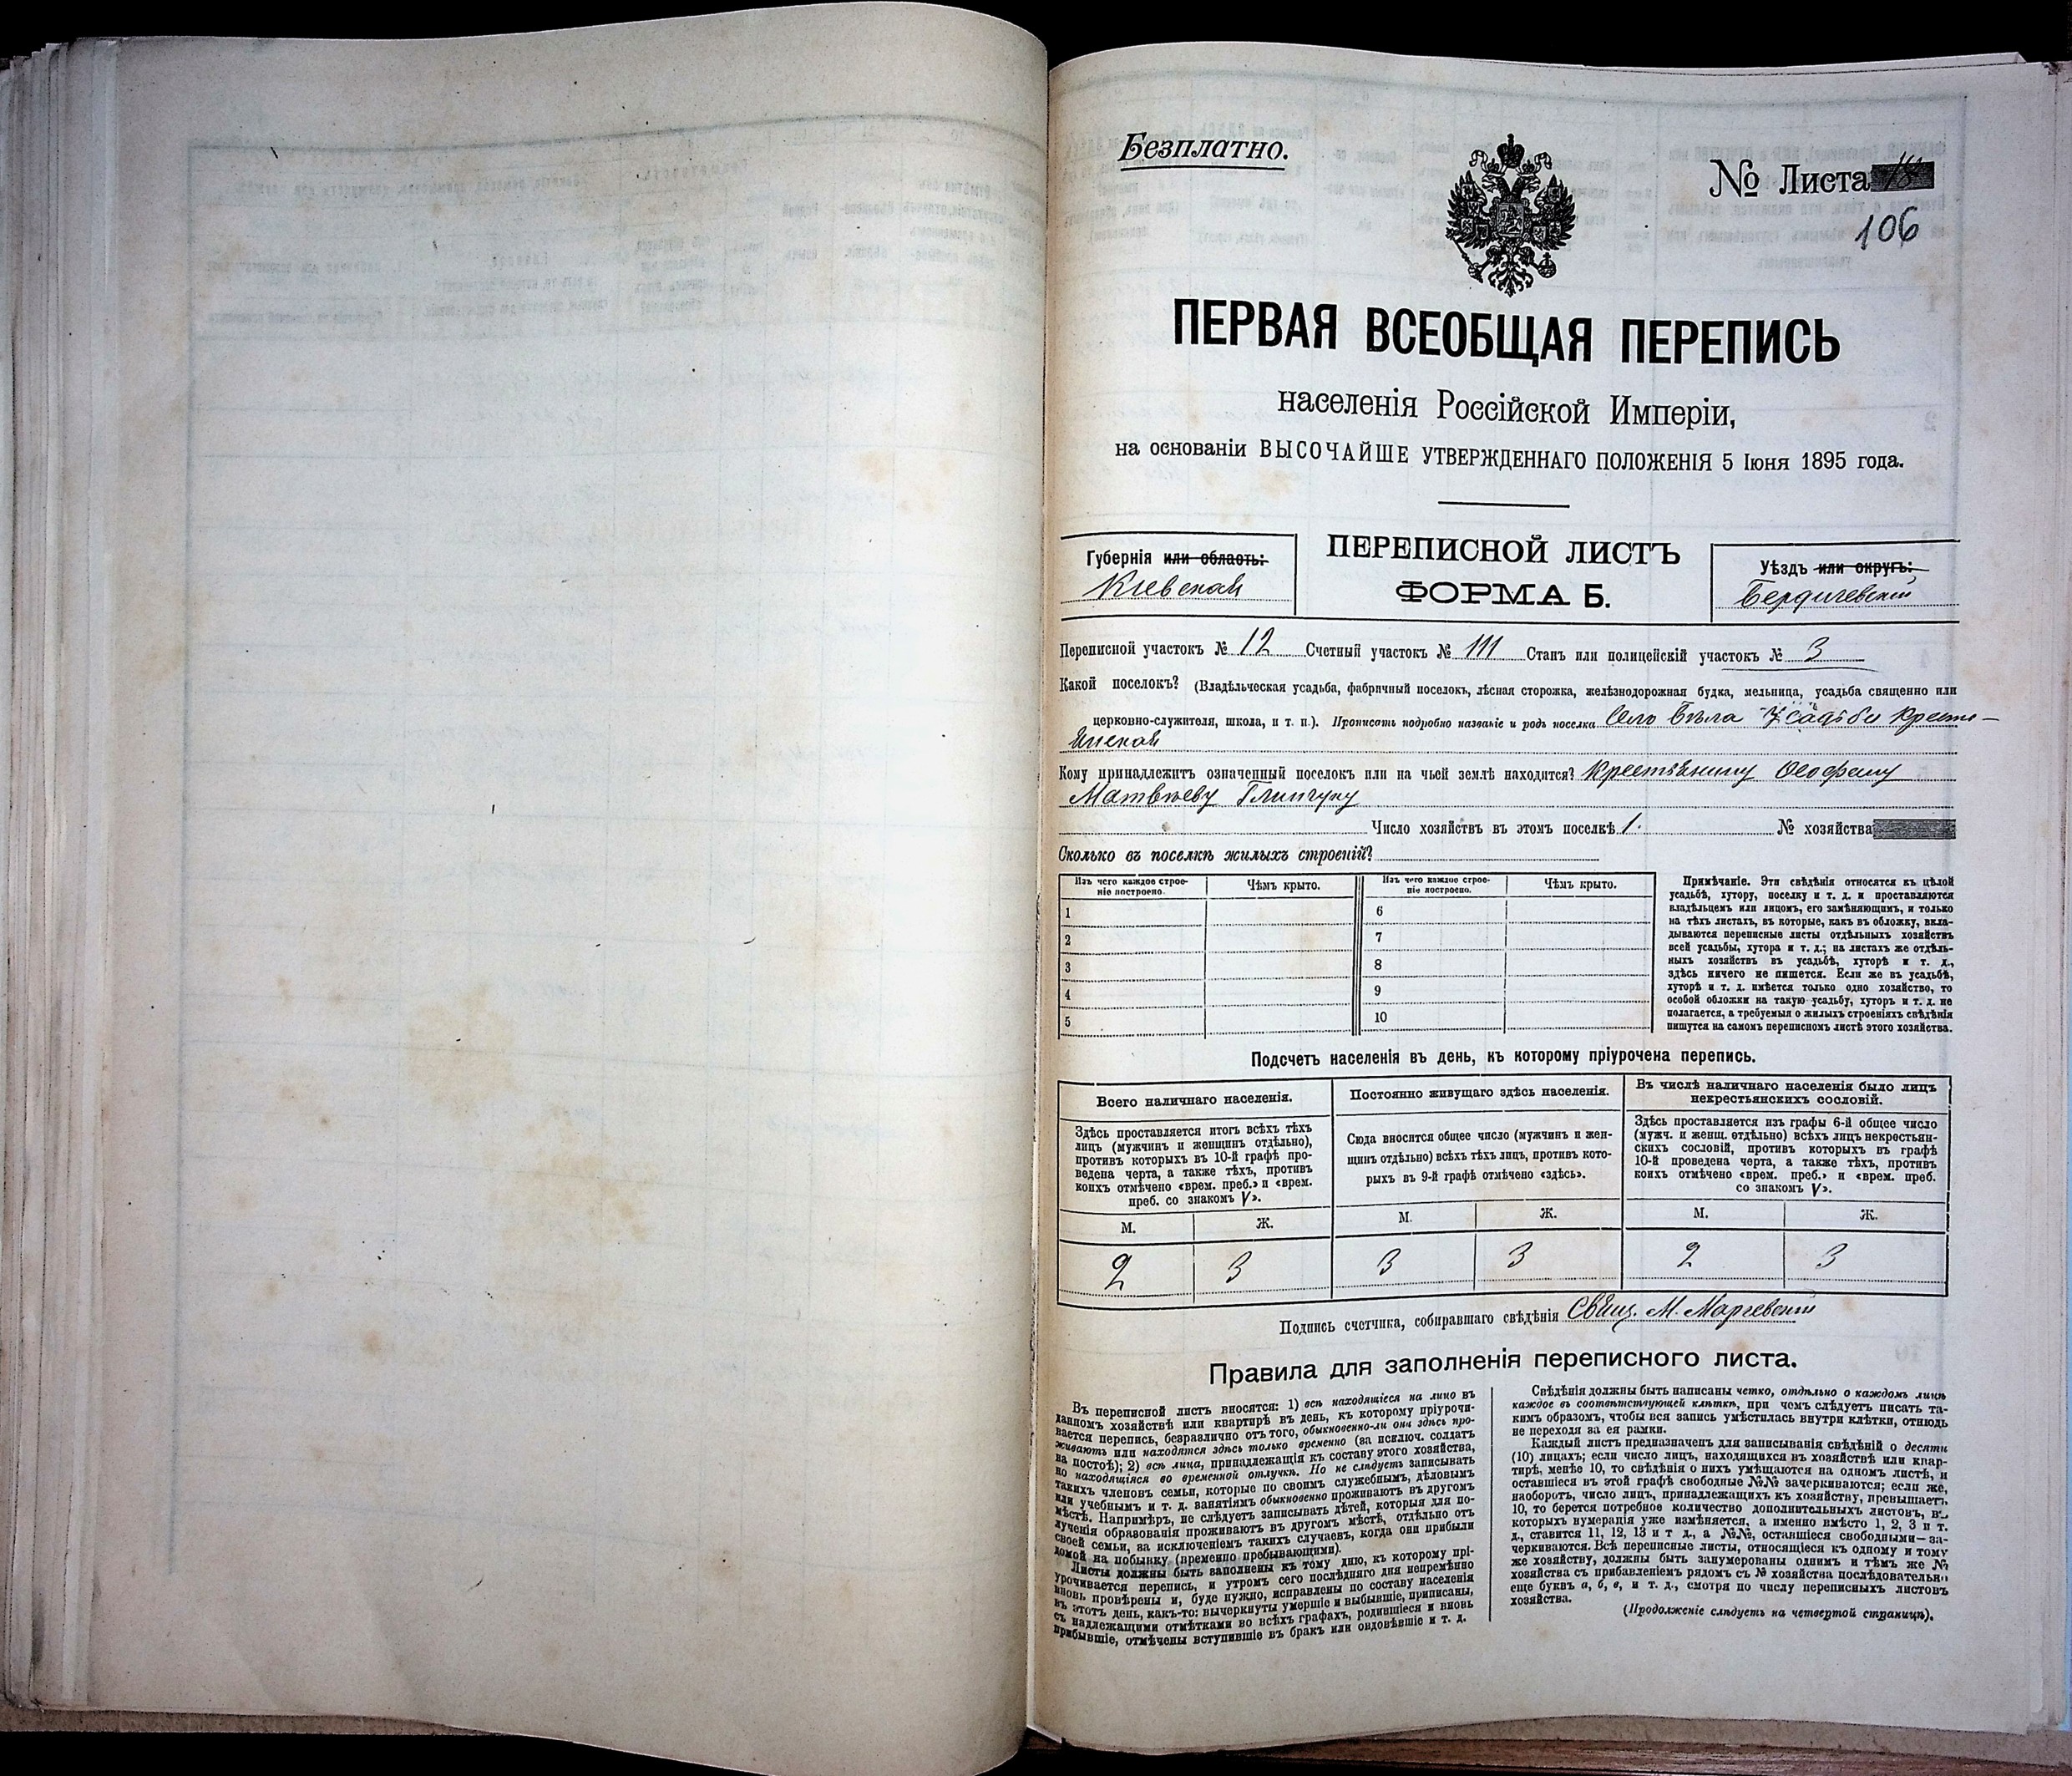 Безплатно.
№ Листа
106
ПЕРВАЯ ВСЕОБЩАЯ ПЕРЕПИСЬ
населенія Россійской Имперіи,
на основаніи ВЫСОЧАЙШЕ УТВЕРЖДЕННАГО ПОЛОЖЕНІЯ 5 Іюня 1895 года.
Губернія или область:
Кіевская
ПЕРЕПИСНОЙ ЛИСТЪ
ФОРМА Б.
Уѣздъ или округъ:
Бердичевскій
Переписной участокъ № 12 Счетный участокъ № 111 Станъ или полицейскій участокъ № 3
Какой поселокъ? (Владѣльческая усадьба, фабричный поселокъ, лѣсная сторожка, желѣзнодорожная будка, мельница, усадьба священно или
церковно-служителя, школа, и т. п.). Прописать подробно названіе и родъ поселка Село Бѣла Усадьба Кресть-
янская
Кому принадлежитъ означенный поселокъ или на чьей землѣ находится? Крестьянину Ѳеофану
Матвѣеву
Число хозяйствъ въ этомъ поселкѣ 1. № хозяйства
Сколько въ поселкѣ жилыхъ строеній?
Изъ чего каждое строе-
ніе построено.
Чѣмъ крыто.
Изъ чего каждое строе-
ніе построено.
Чѣмъ крыто.
1 6
2 7
3 8
4 9
5 10
Примѣчаніе. Эти свѣдѣнія относятся къ цѣлой
усадьбѣ, хутору, поселку и т. д. и проставляются
владѣльцемъ или лицомъ, его замѣняющимъ, и только
на тѣхъ листахъ, въ которые, какъ въ обложку, вкла-
дываются переписные листы отдѣльныхъ хозяйствъ
всей усадьбы, хутора и т. д.; на листахъ же отдѣль-
ныхъ хозяйствъ въ усадьбѣ, хуторѣ и т. д.,
здѣсь ничего не пишется. Если же въ усадьбѣ,
хуторѣ и т. д. имѣется только одно хозяйство, то
особой обложки на такую усадьбу, хуторъ и т. д. не
полагается, а требуемыя о жилыхъ строеніяхъ свѣдѣнія
пишутся на самомъ переписномъ листѣ этого хозяйства.
Подсчетъ населенія въ день, къ которому пріурочена перепись.
Всего наличнаго населенія.
Здѣсь проставляется итогъ всѣхъ тѣхъ
лицъ (мужчинъ и женщинъ отдѣльно),
противъ которыхъ въ 10-й графѣ про-
ведена черта, а также тѣхъ, противъ
коихъ отмѣчено «врем. преб.» и «врем.
преб. со знакомъ V».
Постоянно живущаго здѣсь населенія.
Сюда вносится общее число (мужчинъ и жен-
щинъ отдѣльно) всѣхъ тѣхъ лицъ, противъ кото-
рыхъ въ 9-й графѣ отмѣчено «здѣсь».
Въ числѣ наличнаго населенія было лицъ
некрестьянскихъ сословій.
Здѣсь проставляется изъ графы 6-й общее число
(мужч. и женщ. отдѣльно) всѣхъ лицъ некрестьян-
скихъ сословій, противъ которыхъ въ графѣ
10-й проведена черта, а также тѣхъ, противъ
коихъ отмѣчено «врем. преб.» и «врем. преб.
со знакомъ V».
М. Ж. М. Ж. М. Ж.
2 3 3 3 2 3
Подпись счетчика, собиравшаго свѣдѣнія Свящ. М. Маргевскій
Правила для заполненія переписного листа.
Въ переписной листъ вносятся: 1) всѣ находящіеся на лицо въ
данномъ хозяйствѣ или квартирѣ въ день, къ которому пріурочи-
вается перепись, безразлично отъ того, обыкновенно-ли они здѣсь про-
живаютъ или находятся здѣсь только временно (за исключ. солдатъ
на постоѣ); 2) всѣ лица, принадлежащія къ составу этого хозяйства,
но находящіяся во временной отлучкѣ. Но не слѣдуетъ записывать
такихъ членовъ семьи, которые по своимъ служебнымъ, дѣловымъ
или учебнымъ и т. д. занятіямъ обыкновенно проживаютъ въ другомъ
мѣстѣ. Напримѣръ, не слѣдуетъ записывать дѣтей, которыя для по-
лученія образованія проживаютъ въ другомъ мѣстѣ, отдѣльно отъ
своей семьи, за исключеніемъ такихъ случаевъ, когда они прибыли
домой на побывку (временно пребывающими).
Листы должны быть заполнены къ тому дню, къ которому прі-
урочивается перепись, и утромъ сего послѣдняго дня непремѣнно
вновь провѣрены и, буде нужно, исправлены по составу населенія
въ этотъ день, какъ-то: вычеркнуты умершіе и выбывшіе, приписаны,
съ надлежащими отмѣтками во всѣхъ графахъ, родившіеся и вновь
прибывшіе, отмѣчены вступившіе въ бракъ или овдовѣвшіе и т. д.
Свѣдѣнія должны быть написаны четко, отдѣльно о каждомъ лицѣ
каждое въ соотвѣтствующей клѣткѣ, при чемъ слѣдуетъ писать та-
кимъ образомъ, чтобы вся запись умѣстилась внутри клѣтки, отнюдь
не переходя за ея рамки.
Каждый листъ предназначенъ для записыванія свѣдѣній о десяти
(10) лицахъ; если число лицъ, находящихся въ хозяйствѣ или квар-
тирѣ, менѣе 10, то свѣдѣнія о нихъ умѣщаются на одномъ листѣ, и
оставшіеся въ этой графѣ свободные №№ зачеркиваются; если же,
наоборотъ, число лицъ, принадлежащихъ къ хозяйству, превышаетъ
10, то берется потребное количество дополнительныхъ листовъ, въ
которыхъ нумерація уже измѣняется, а именно вмѣсто 1, 2, 3 и т.
д., ставится 11, 12, 13 и т д., а №№, оставшіеся свободными—за-
черкиваются. Всѣ переписные листы, относящіеся къ одному и тому
же хозяйству, должны быть занумерованы однимъ и тѣмъ же №
хозяйства съ прибавленіемъ рядомъ съ № хозяйства послѣдовательно
еще буквъ а, б, в, и т. д., смотря по числу переписныхъ листовъ
хозяйства.
(Продолженіе слѣдуетъ на четвертой страницѣ).